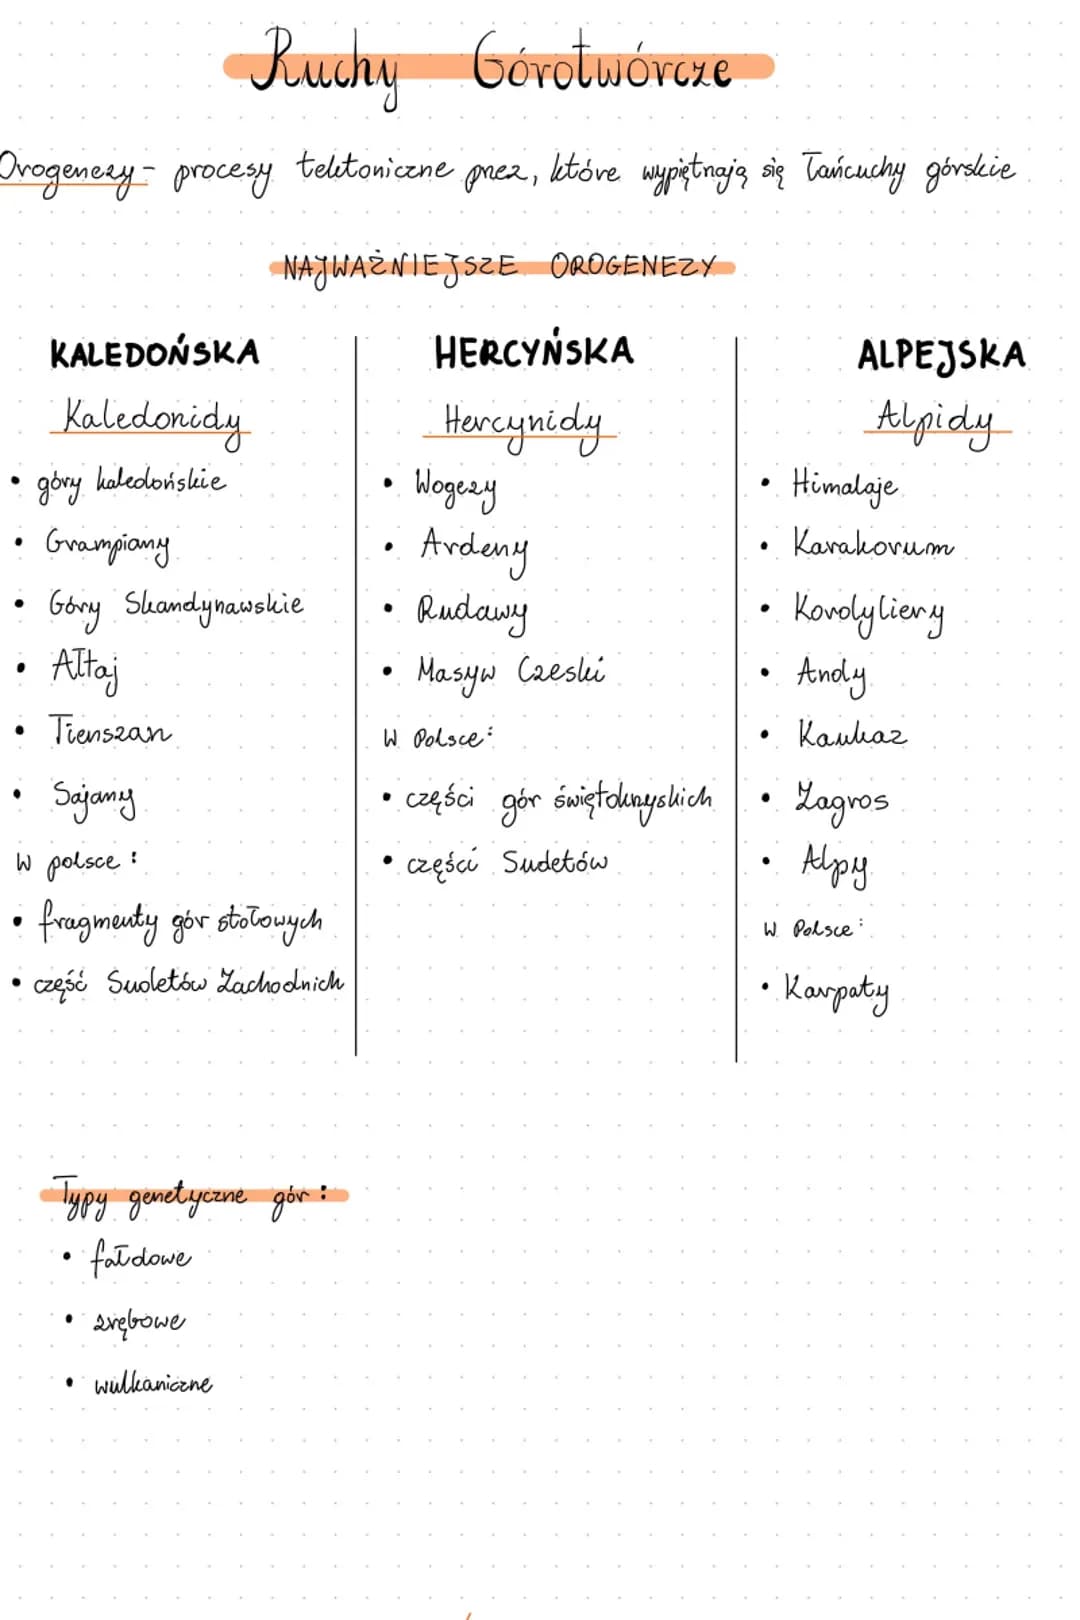 Ruchy Górotwórcze
Orogenezy - procesy tektoniczne przez, które wypiętrzają się łańcuchy górskie
NAJWAŻNIEJSZE OROGENEZY
KALEDOŃSKA
Kaledonidy
• góry kaledońskie
• Grampiany
• Góry Skandynawskie
• Ałtaj
• Tienszan
• Sajany
W polsce:
• fragmenty gór stołowych
• część Sudetów Zachodnich
HERCYŃSKA
Hercynidy
• Wogezy
• Ardeny
• Rudawy
• Masyw Czeski
W Polsce:
• części gór świętokrzyskich
• części Sudetów
ALPEJSKA
Alpidy
• Himalaje
• Karakorum
• Kordyliery
• Andy
• Kaukaz
• Zagros
• Alpy
W Polsce:
• Karpaty
Typy genetyczne gór:
• fałdowe
• zrębowe
• wulkaniczne